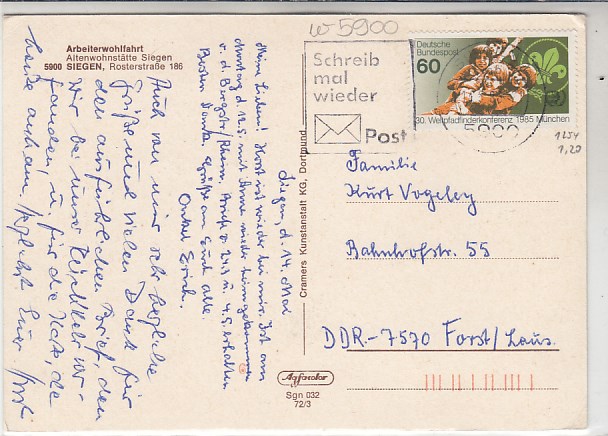 Arbeiterwohlfahrt
Altenwohnstätte Siegen
5900 SIEGEN, Rosterstraße 186
w 5900
Schreib
mal
wieder
Post
Deutsche
Bundespost
60
30. Weltpfadfinderkonferenz 1985 München
5900
1254
1,20
Siegen, d. 14. Mai
Meine Lieben! Horst ist wieder bei mir. Ist am
12.5. mit Irme wieder heimgekommen
v. d. Bergstr/Rhein. Briefe v. 24.3 u. 4.5. erhalten
Besten Dank. Grüße an Euch alle.
Onkel Erich.
Auch von mir sehr herzliche
Grüße und vielen Dank für
den ausführlichen Brief, den
wir bei unser Rückkehr vor-
fanden, u. für die Karte, die
heute ankam, herzlichst Eure
Cramers Kunstanstalt KG, Dortmund
Familie
Kurt Vogeley
Bahnhofstr. 55
DDR-7570 Forst/Laus.
Agfacolor
Sgn 032
72/3